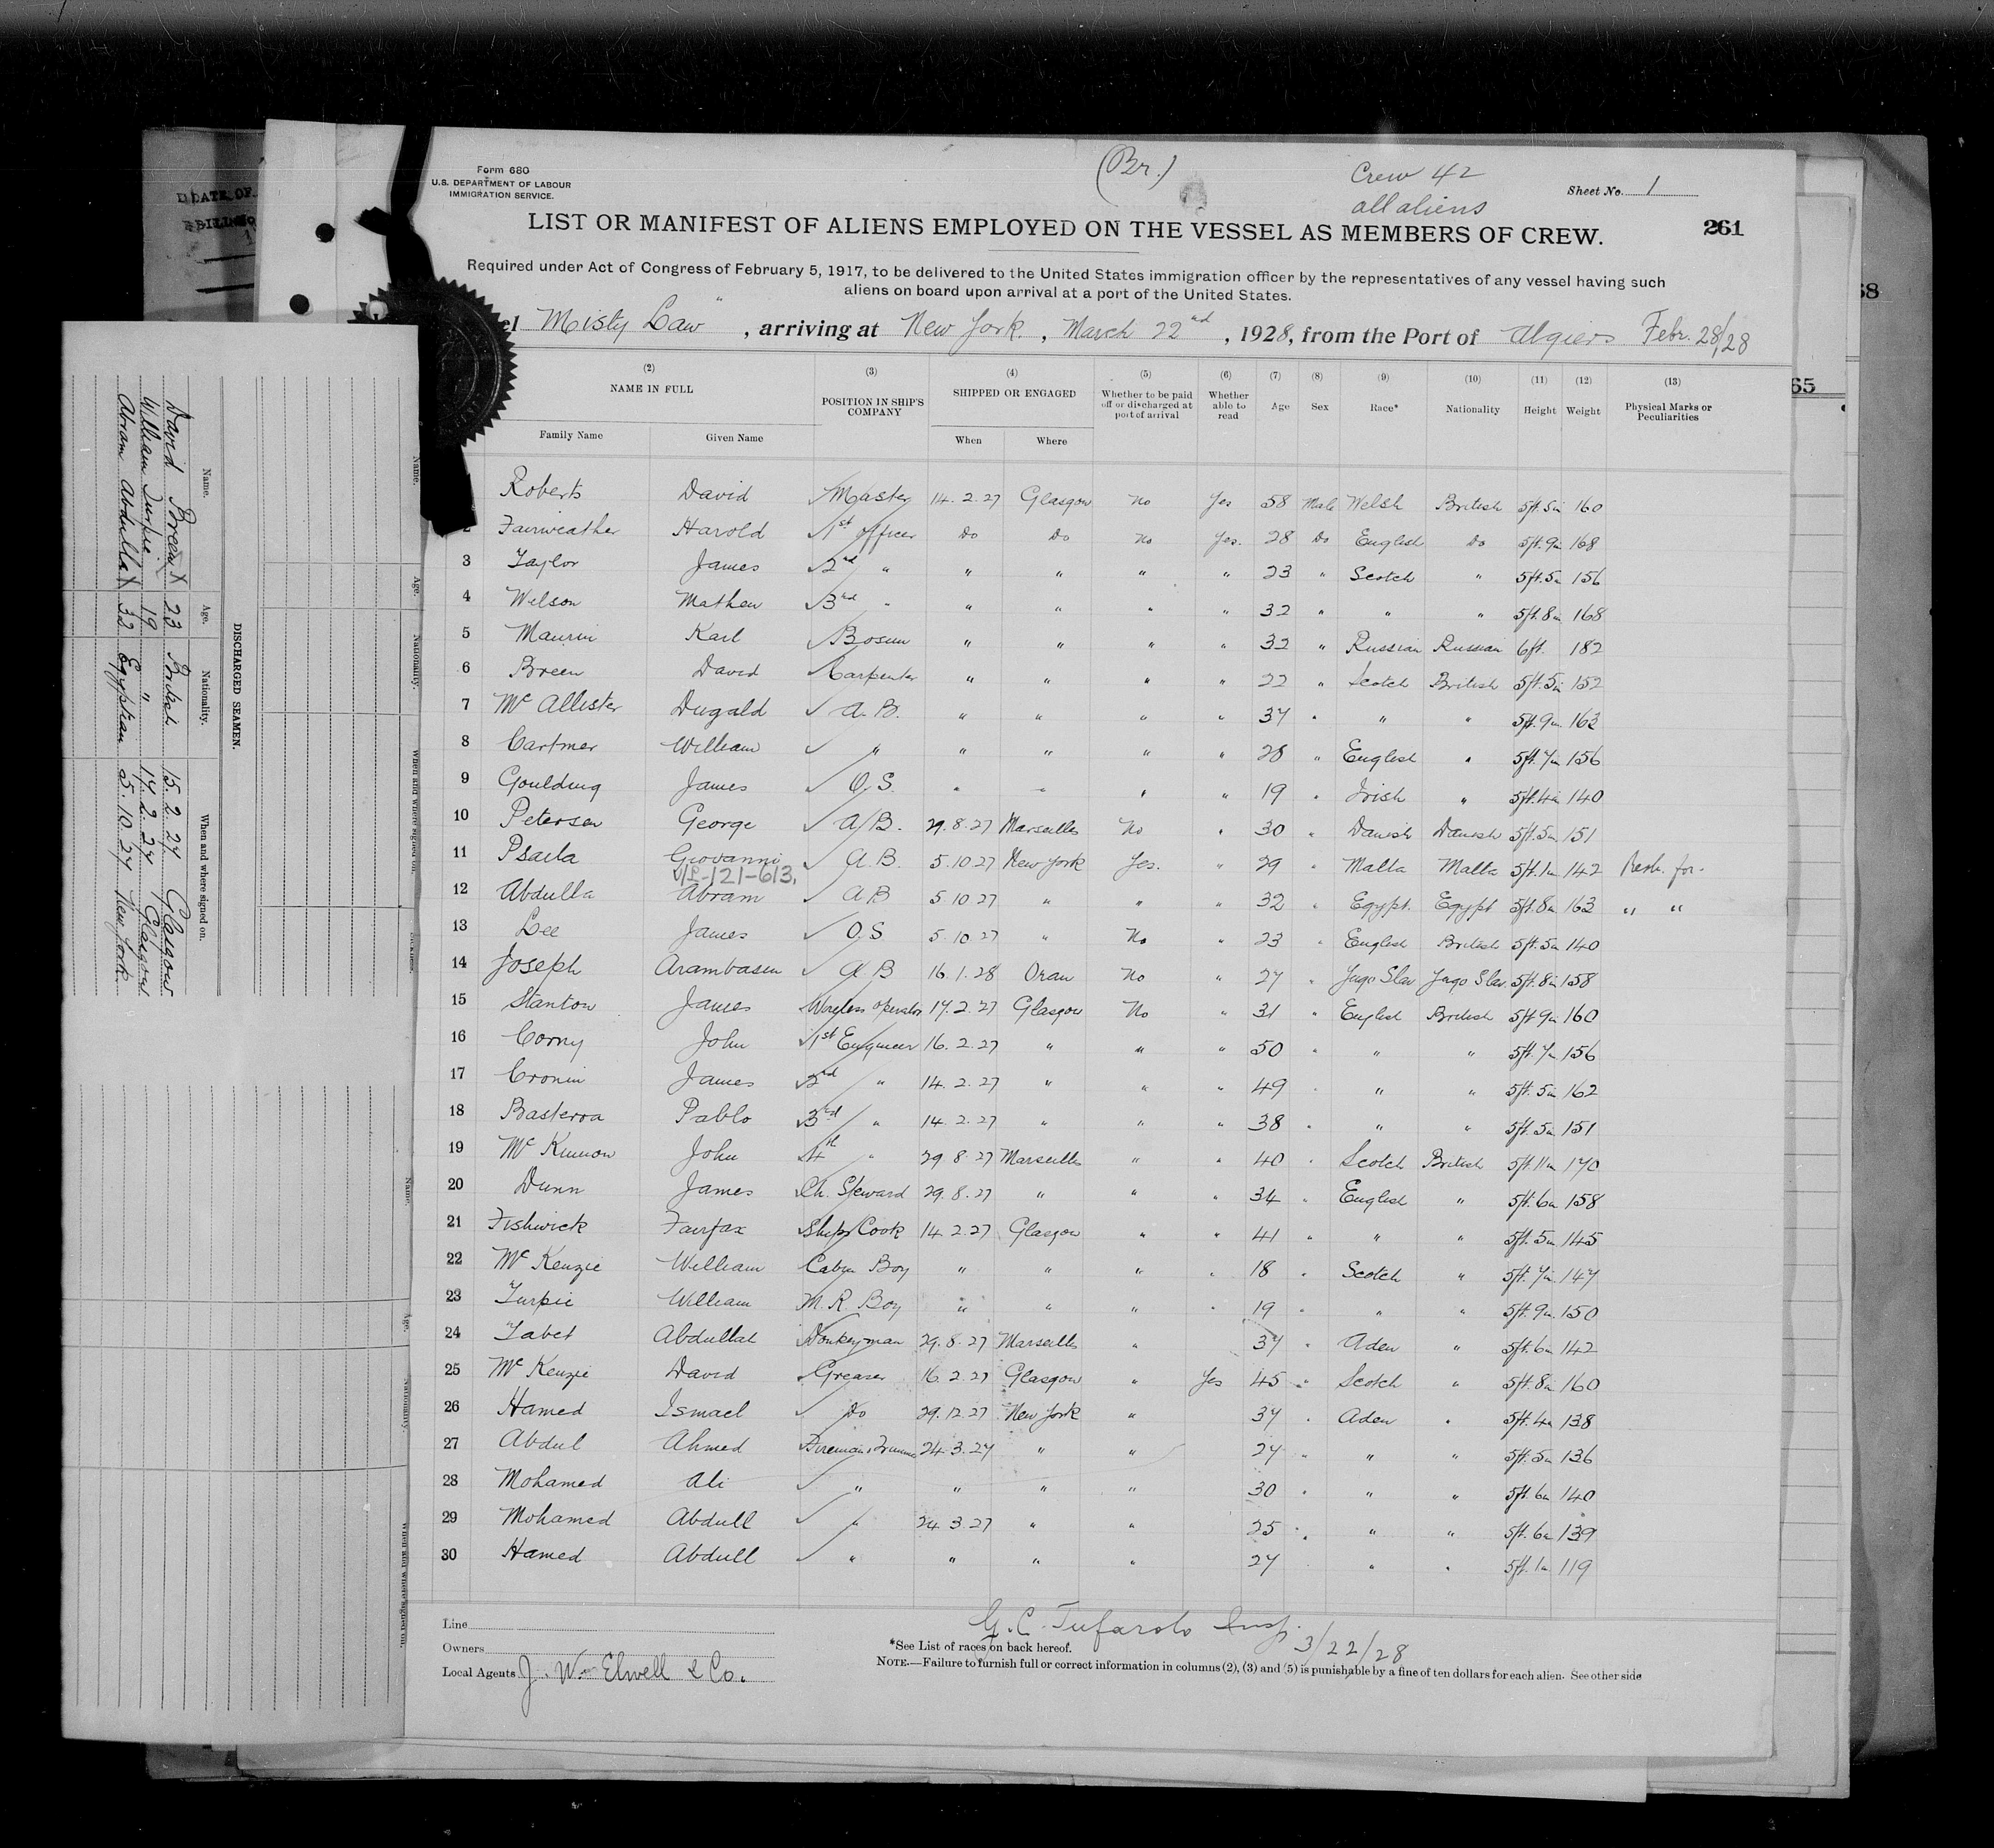 Form 680
U.S. DEPARTMENT OF LABOUR
IMMIGRATION SERVICE.
(Br.)
Crew 42
all aliens
Sheet No. 1
LIST OR MANIFEST OF ALIENS EMPLOYED ON THE VESSEL AS MEMBERS OF CREW.
261
Required under Act of Congress of February 5, 1917, to be delivered to the United States immigration officer by the representatives of any vessel having such
aliens on board upon arrival at a port of the United States.
Misty Law", arriving at New York, March 22nd, 1928, from the Port of Algiers Febr. 28/28
(2) (3) (4) (5) (6) (7) (8) (9) (10) (11) (12) (13)
NAME IN FULL POSITION IN SHIP'S COMPANY SHIPPED OR ENGAGED Whether to be paid off or discharged at port of arrival Whether able to read Age Sex Race* Nationality Height Weight Physical Marks or Peculiarities
Family Name Given Name When Where
Roberts David Master 14.2.27 Glasgow No Yes 58 Male Welsh British 5ft.5in 160
2 Fairweather Harold 1st Officer Do Do No Yes. 28 Do English Do 5ft.9in 168
3 Taylor James 2nd " " " " " 23 " Scotch " 5ft.5in 156
4 Welson Mathew 3rd " " " " " 32 " " " 5ft.8in 168
5 Maurin Karl Bosun " " " " 32 " Russian Russian 6ft. 182
6 Breen David Carpenter " " " " 22 " Scotch British 5ft.5in 152
7 McAllister Dugald A.B. " " " " 37 " " " 5ft.9in 163
8 Cartmer William " " " " " 28 " English " 5ft.7in 156
9 Goulding James O.S. " " " " 19 " Irish " 5ft.4in 140
10 Petersen George A.B. 29.8.27 Marseilles No " 30 " Danish Danish 5ft.5in 151
11 Psaila Giovanni A.B. 5.10.27 New York Yes. " 29 " Malta Malta 5ft.1in 142
-121-613,
12 Abdulla Abram A.B 5.10.27 " " " 32 " Egypt. Egypt 5ft.8in 163 " "
13 Lee James O.S 5.10.27 " No " 23 " English British 5ft.5in 140
14 Joseph Arambasin A B 16.1.28 Oran No " 27 " Jugo Slav Jugo Slav. 5ft.8in 158
15 Stanton James Wireless Operator 17.2.27 Glasgow No " 31 " English British 5ft.9in 160
16 Corny John 1st Engineer 16.2.27 " " " 50 " " " 5ft.7in 156
17 Cronin James 2nd " 14.2.27 " " " 49 " " " 5ft.5in 162
18 Basterra Pablo 3rd " 14.2.27 " " " 38 " " " 5ft.5in 151
19 McKinnon John 4th " 29.8.27 Marseilles " " 40 " Scotch British 5ft.11in 170
20 Dunn James Ch. Steward 29.8.27 " " " 34 " English " 5ft.6in 158
21 Fishwick Fairfax Ships Cook 14.2.27 Glasgow " " 41 " " " 5ft.5in 145
22 McKenzie William Cabin Boy " " " " 18 " Scotch " 5ft.7in 147
23 Turpie William M.R. Boy " " " " 19 " " " 5ft.9in 150
24 Tabet Abdullah Donkeyman 29.8.27 Marseilles " 37 " Aden " 5ft.6in 142
25 McKenzie David Greaser 16.2.27 Glasgow " Yes 45 " Scotch " 5ft.8in 160
26 Hamed Ismael Do 29.12.27 New York " 37 " Aden " 5ft.4in 138
27 Abdul Ahmed Fireman & Trimmer 24.3.27 " " 27 " " " 5ft.5in 136
28 Mohamed Ali " " " " 30 " " " 5ft.6in 140
29 Mohamed Abdull " 24.3.27 " " 25 " " " 5ft.6in 139
30 Hamed Abdull " " " " 27 " " 5ft.1in 119
Line
Owners
Local Agents J. W. Elwell & Co.
G. C. Tufarolo Insp. 3/22/28
*See List of races on back hereof.
NOTE.—Failure to furnish full or correct information in columns (2), (3) and (5) is punishable by a fine of ten dollars for each alien. See other side
DISCHARGED SEAMEN.
Name. Age. Nationality. When and where signed on.
David Breen X 23 British 15.2.27 Glasgow
William Turpie 19 " 14.2.27 Glasgow
Abram Abdulla X 32 Egyptian 5.10.27 New York
Name. Age. Nationality. When and where signed on.
Name. Age. Nationality. When and where signed on.
DATE OF
58
65